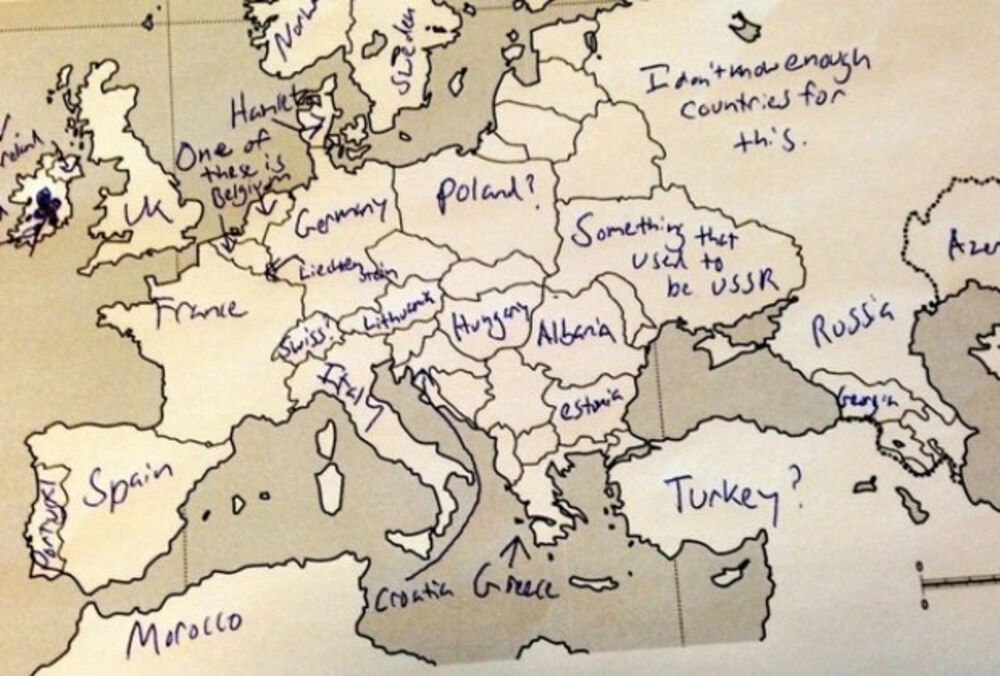 Norw
Sweden
I don't know enough
countries for
this.
Hamlet
One of
these is
Belgium
reland
UK
Germany
Poland?
Something that
used to
be USSR
Azer
Liechten
stein
France
Swiss?
Lithuania
Hungary
Albania
Russia
Italy
estonia
Georgia
Spain
Portugal
Turkey?
Croatia
Greece
Morocco
0
0